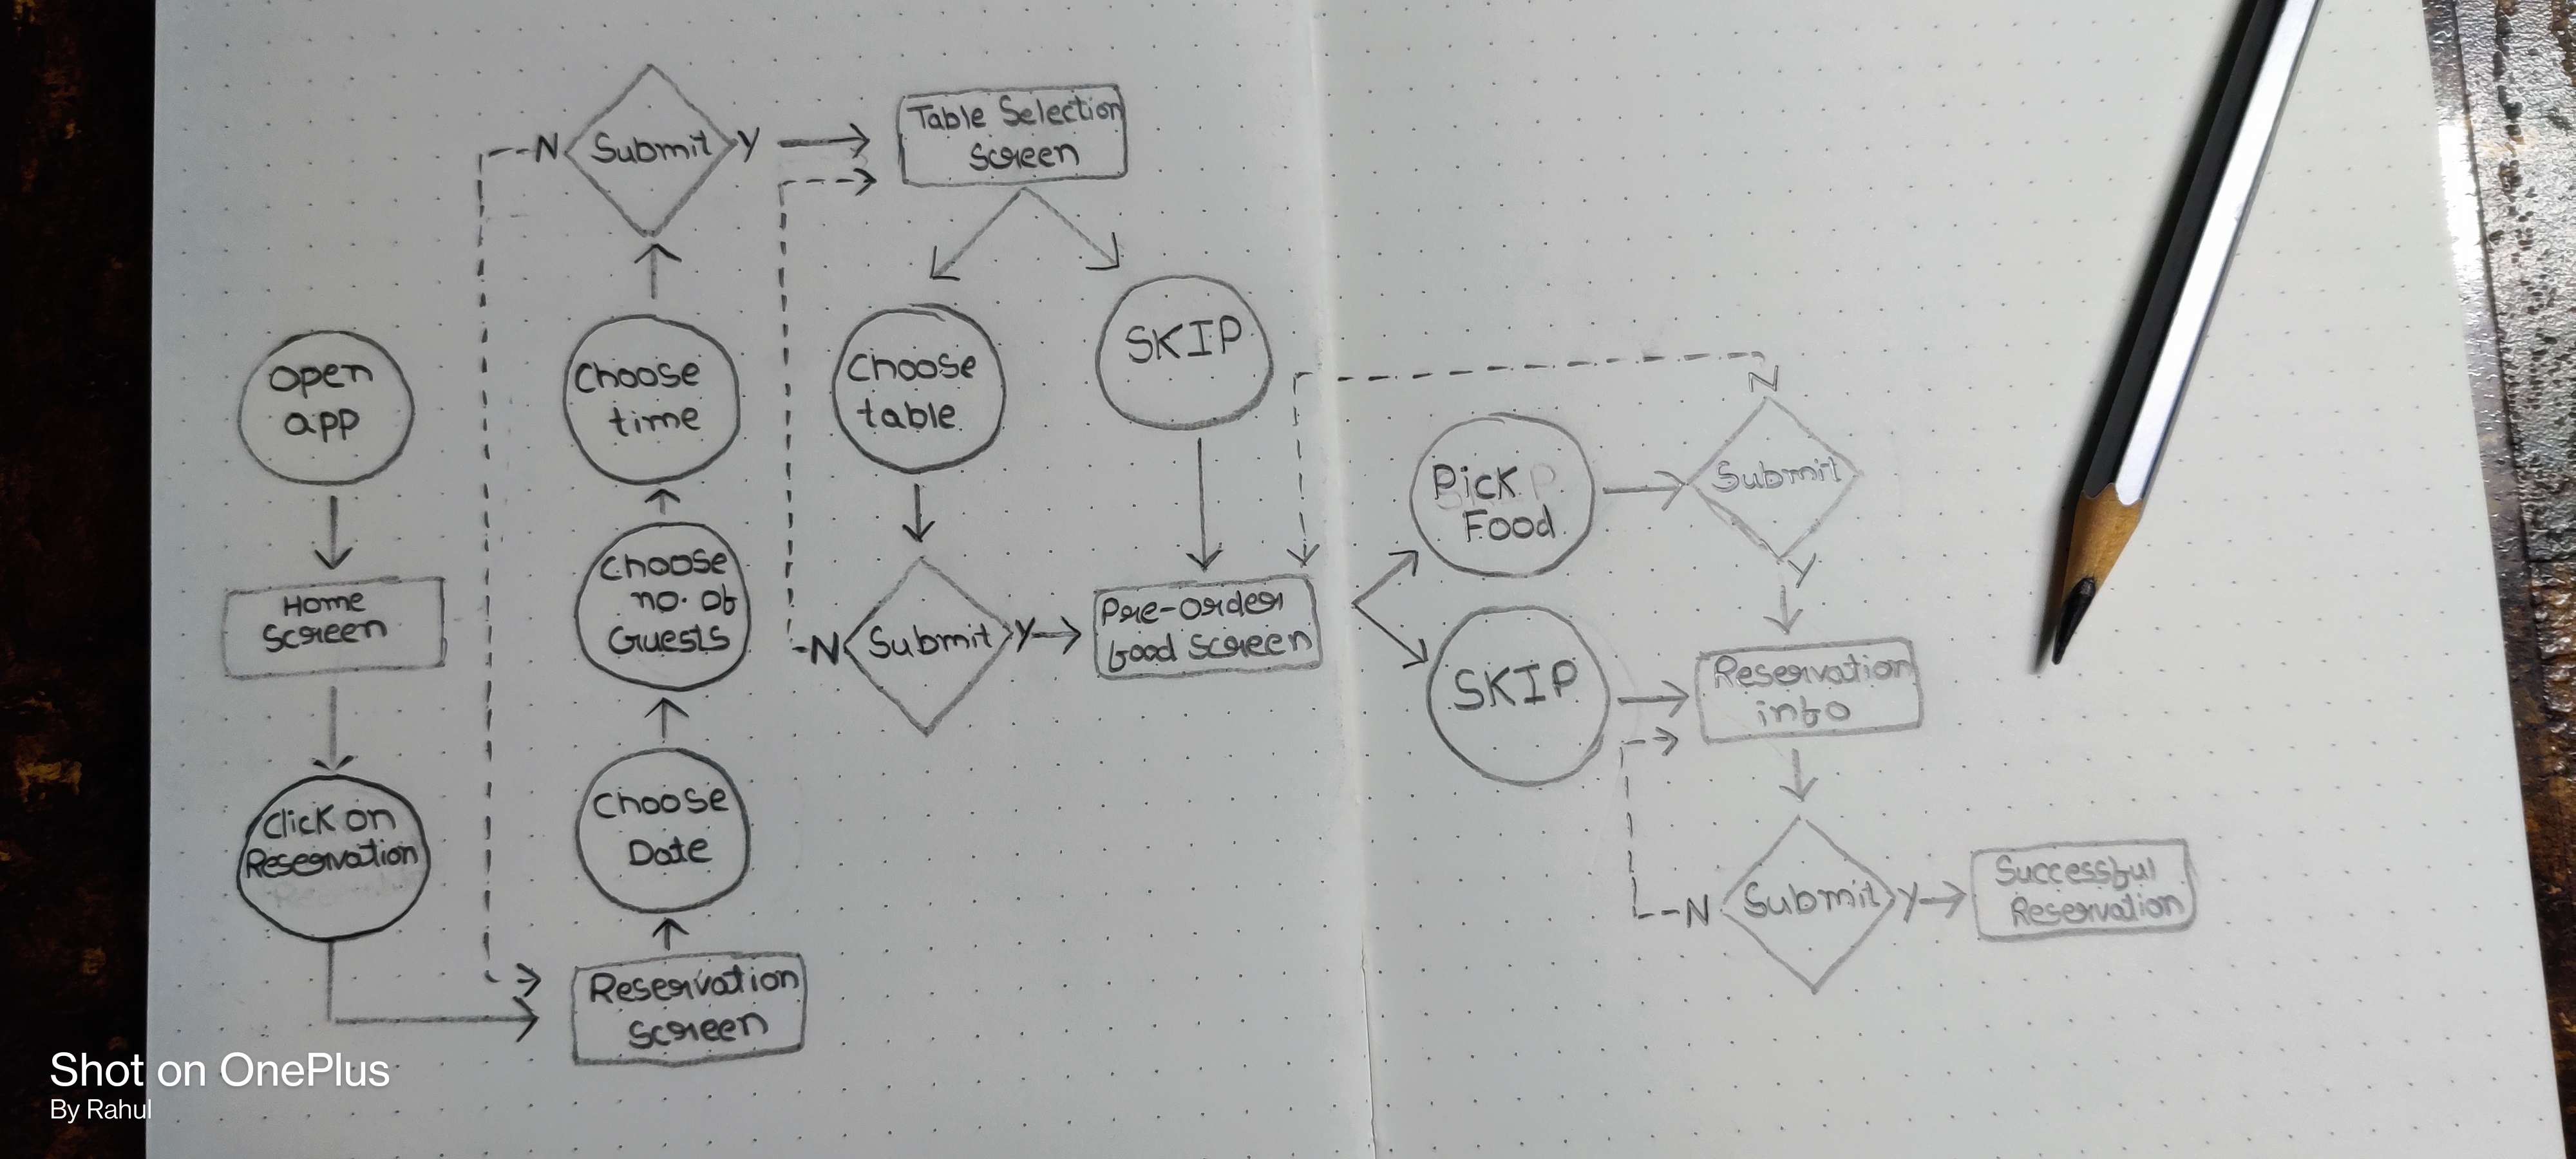 Open
app
Home
Screen
Click on
Reservation
Reservation
Screen
Choose
Date
Choose
no. of
Guests
Choose
time
Submit
N
Y
Table Selection
Screen
Choose
table
SKIP
Submit
N
Y
Pre-order
food screen
Pick
Food
SKIP
Submit
N
Y
Reservation
info
Submit
N
Y
Successful
Reservation
Shot on OnePlus
By Rahul